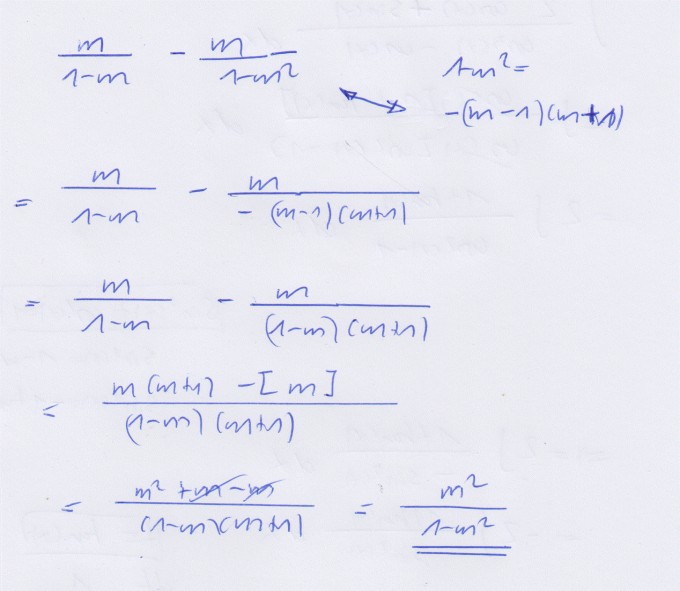 m/(1-m) - m/(1-m²) =
1-m² =
-(m-1)(m+1)
= m/(1-m) - m/(-(m-1)(m+1))
= m/(1-m) - m/((1-m)(m+1))
= (m(m+1) - [m])/((1-m)(m+1))
= (m² + m - m)/((1-m)(m+1)) = m²/(1-m²)